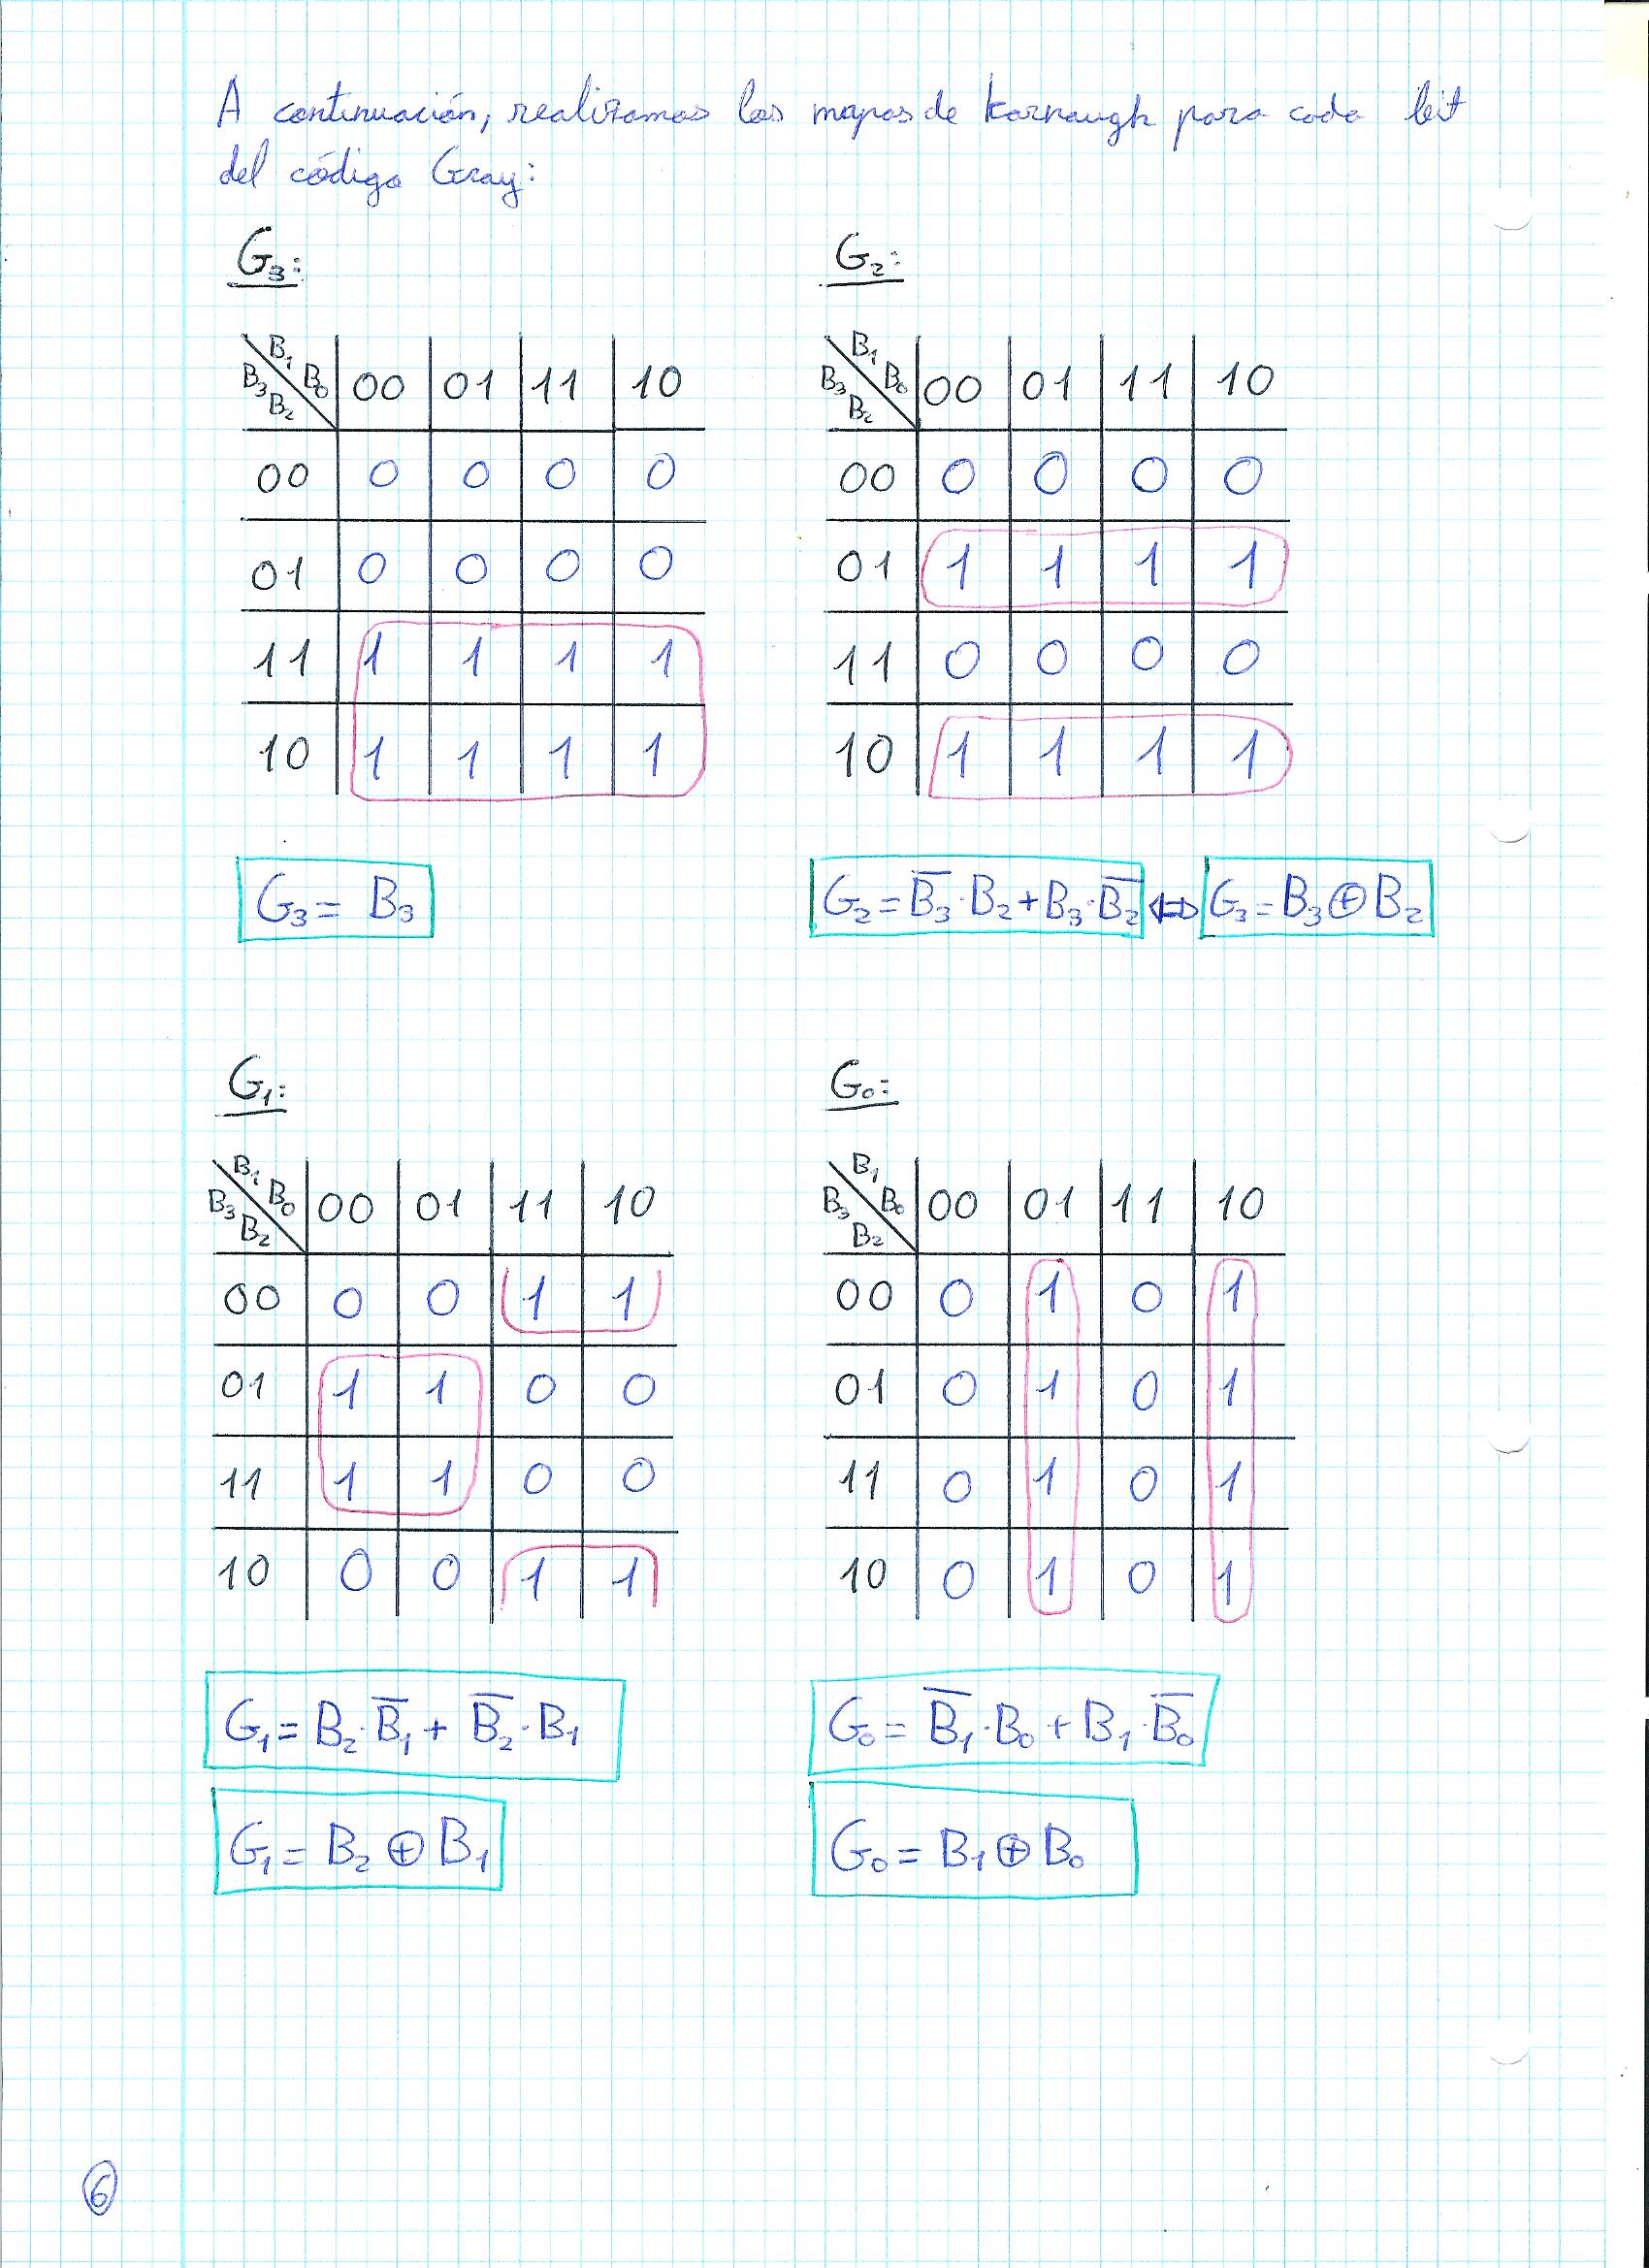 A continuación, realizamos los mapas de Karnaugh para cada bit
del código Gray:
G₃:
B₁ B₀
B₃ B₂
00 01 11 10
00 0 0 0 0
01 0 0 0 0
11 1 1 1 1
10 1 1 1 1
G₃ = B₃
G₂:
B₁ B₀
B₃ B₂
00 01 11 10
00 0 0 0 0
01 1 1 1 1
11 0 0 0 0
10 1 1 1 1
G₂ = B̅₃·B₂ + B₃·B̅₂ ⇔ G₃ = B₃ ⊕ B₂
G₁:
B₁ B₀
B₃ B₂
00 01 11 10
00 0 0 1 1
01 1 1 0 0
11 1 1 0 0
10 0 0 1 1
G₁ = B₂·B̅₁ + B̅₂·B₁
G₁ = B₂ ⊕ B₁
G₀:
B₁ B₀
B₃ B₂
00 01 11 10
00 0 1 0 1
01 0 1 0 1
11 0 1 0 1
10 0 1 0 1
G₀ = B̅₁·B₀ + B₁·B̅₀
G₀ = B₁ ⊕ B₀
6